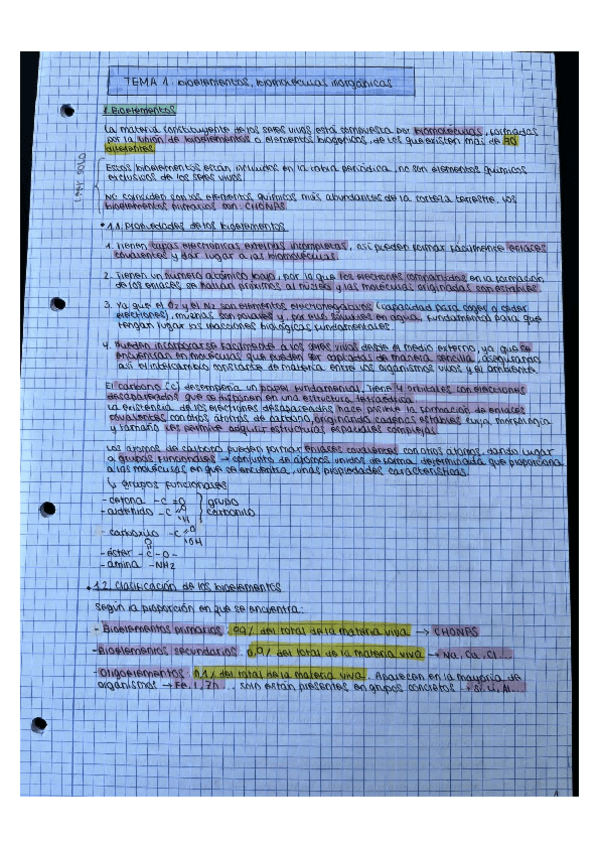 TEMA 1: bioelementos, biomoléculas inorgánicas
1. Bioelementos
La materia constituyente de los seres vivos está compuesta por biomoléculas, formadas
por la unión de bioelementos o elementos biogénicos, de los que existen más de 70
diferentes.
Estos bioelementos están incluidos en la tabla periódica, no son elementos químicos
exclusivos de los seres vivos
No coinciden con los elementos químicos más abundantes de la corteza terrestre. Los
bioelementos primarios son: CHONPS
1.1. Propiedades de los bioelementos.
1. Tienen capas electrónicas externas incompletas, así pueden formar fácilmente enlaces
covalentes y dar lugar a las biomoléculas.
2. Tienen un número atómico bajo, por lo que los electrones compartidos en la formación
de los enlaces se hallan próximos al núcleo y las moléculas originadas son estables.
3. Ya que el O2 y el N2 son elementos electronegativos (capacidad para coger o ceder
electrones), muchas son polares y, por eso, solubles en agua, fundamental para que
tengan lugar las reacciones biológicas fundamentales.
4. Pueden incorporarse fácilmente a los seres vivos desde el medio externo, ya que se
encuentran en moléculas que pueden ser captadas de manera sencilla, asegurando
así el intercambio constante de materia entre los organismos vivos y el ambiente.
El carbono (C) desempeña un papel fundamental, tiene 4 orbitales con electrones
desapareados que se disponen en una estructura tetraédrica.
La existencia de los electrones desapareados hace posible la formación de enlaces
covalentes con otros átomos de carbono, originando cadenas estables cuya morfología
y tamaño les permite adquirir estructuras espaciales complejas.
Los átomos de carbono pueden formar enlaces covalentes con otros átomos, dando lugar
a grupos funcionales → conjunto de átomos unidos de forma determinada que proporciona
a las moléculas en que se encuentra, unas propiedades características.
↳ grupos funcionales
- cetona -C=O grupo
- aldehído -C=O H carbonilo
- carboxilo -C=O OH
- éster -C-O- O
- amina -NH2
1.2. Clasificación de los bioelementos
Según la proporción en que se encuentra:
- Bioelementos primarios: 99% del total de la materia viva → CHONPS
- Bioelementos secundarios: 0,9% del total de la materia viva → Na, Ca, Cl...
- Oligoelementos: 0,1% del total de la materia viva. Aparecen en la mayoría de
organismos → Fe, I, Zn... solo están presentes en grupos concretos → Si, Li, Al...